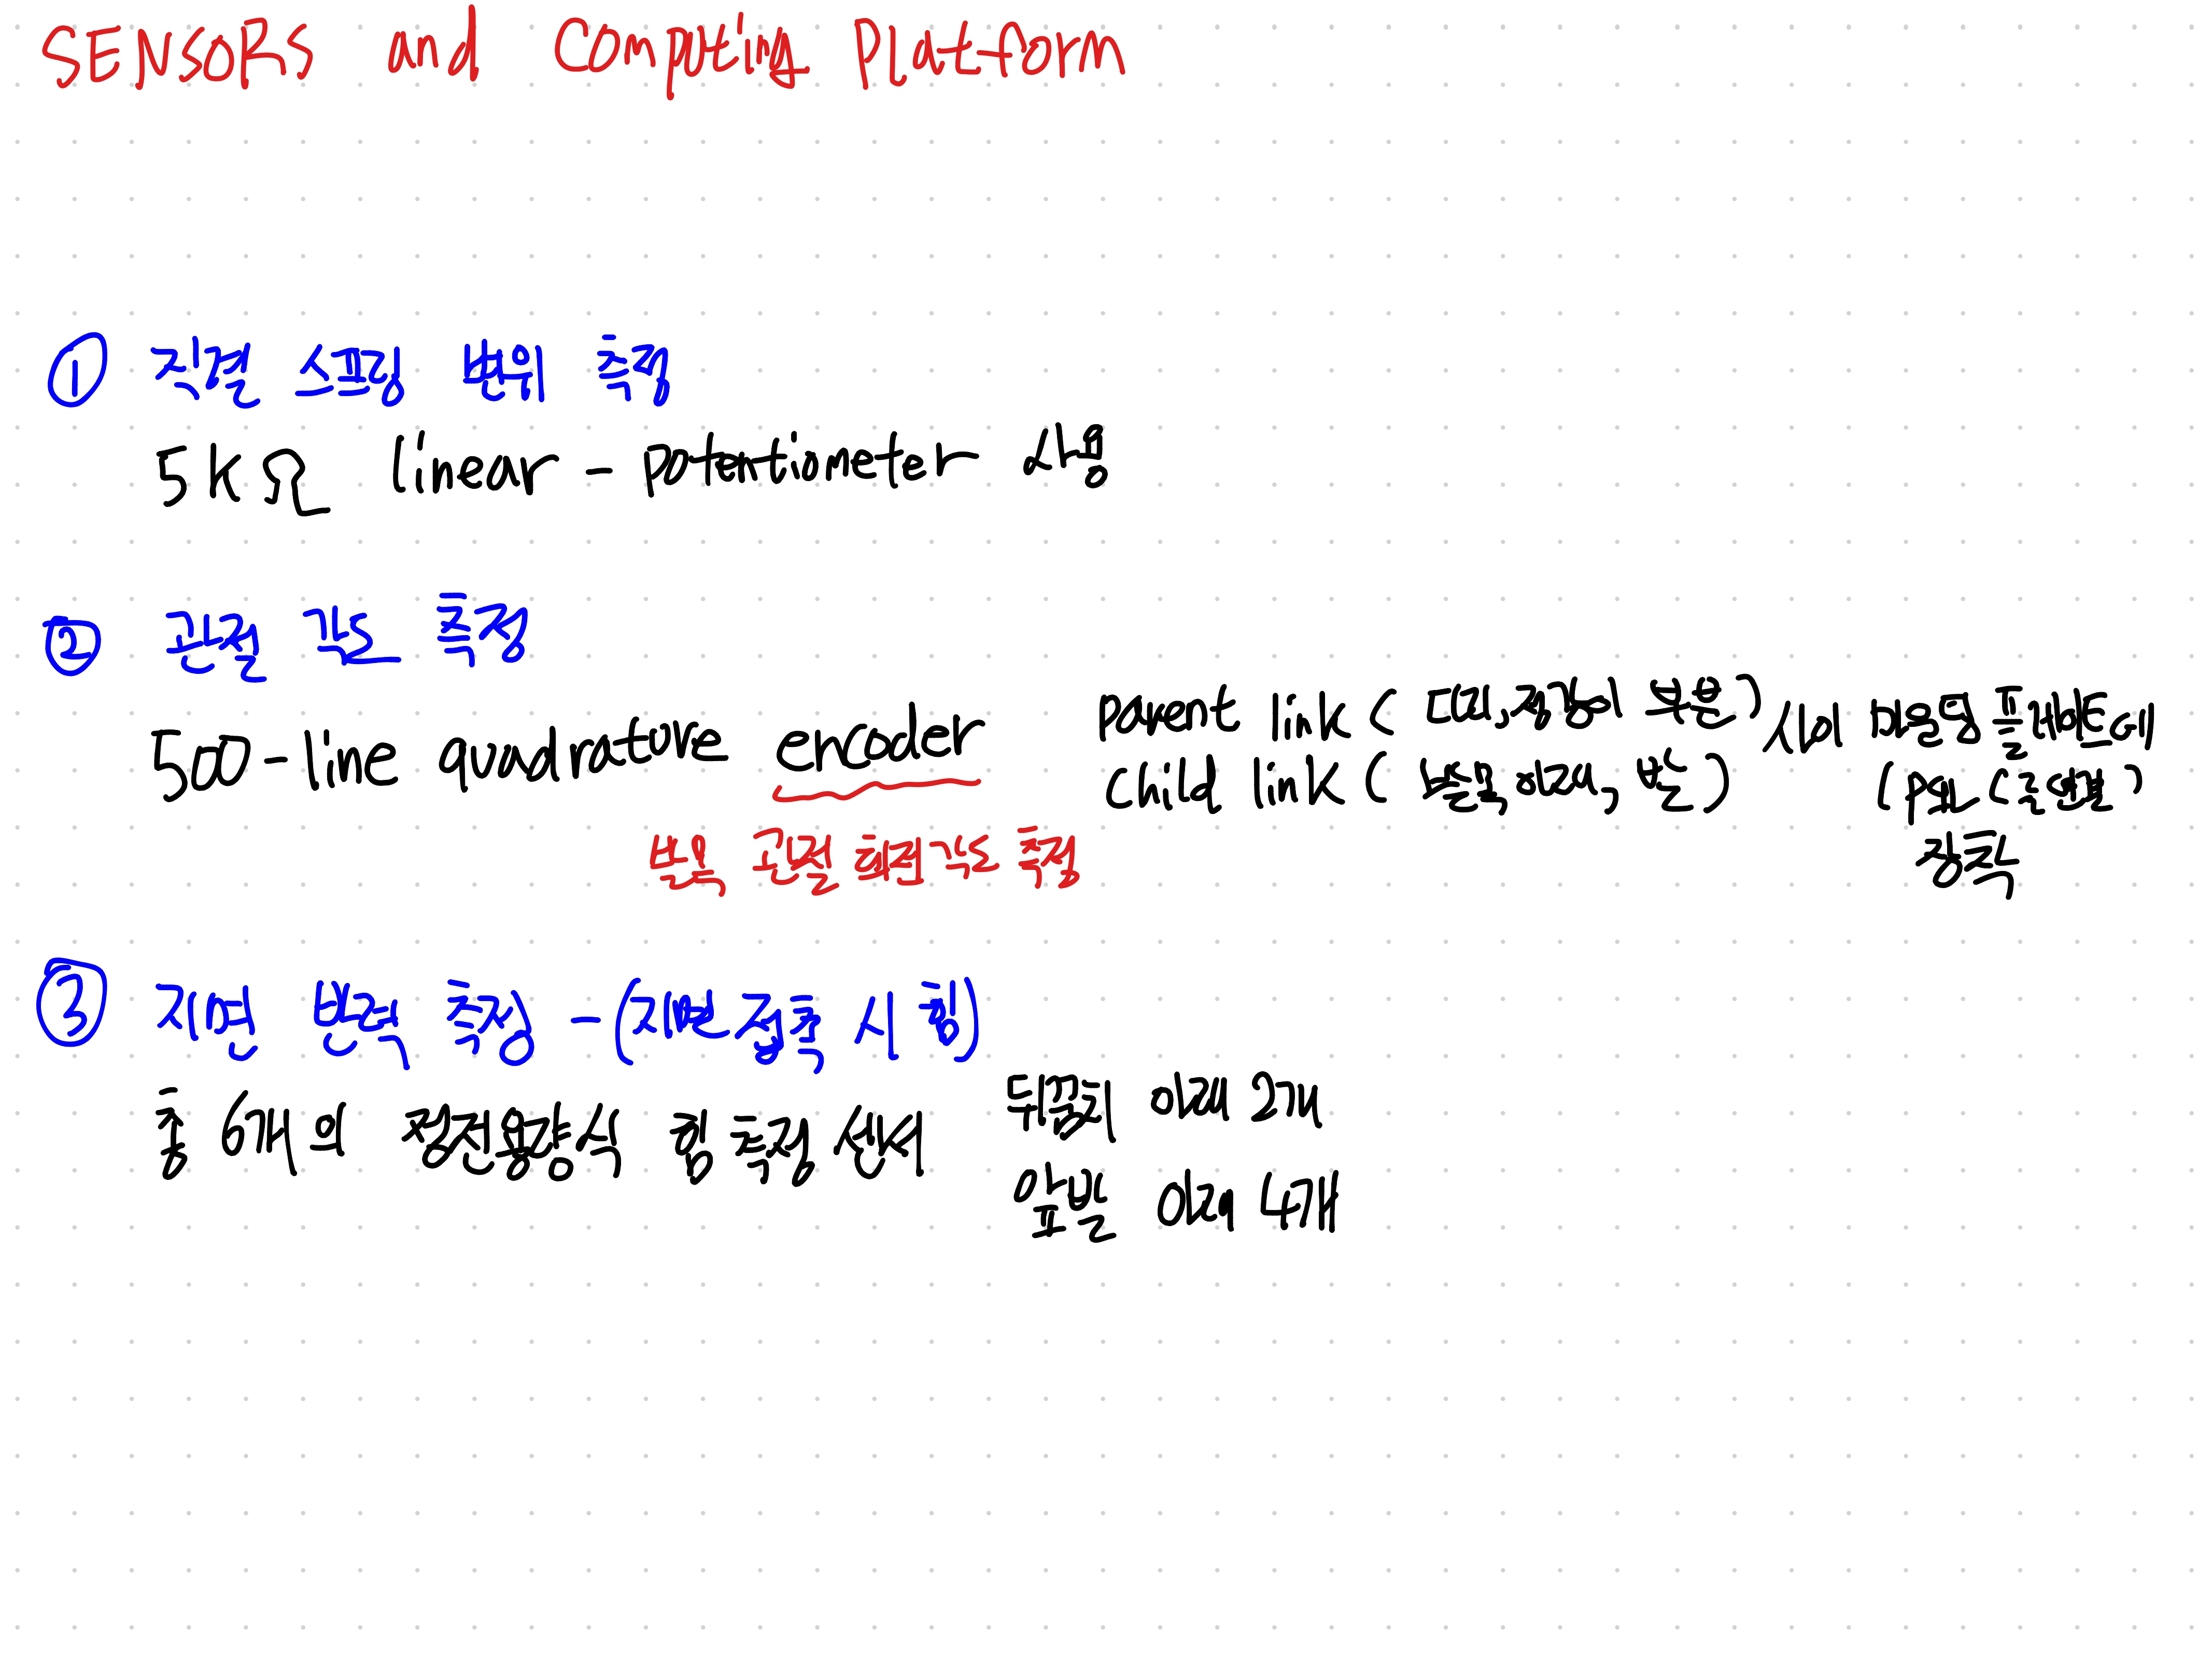 SENSORS and Computing Platform
① 직선 스프링 변위 측정
5KΩ linear-potentiometer 사용
② 관절 각도 측정
500-line quadrature encoder
발목 관절 회전각도 측정
parent link ( 대퇴, 정강이 부분 ) 사이
child link ( 발목, 아래, 발 )
맞춤형 플레이트에
장착
③ 지면 반력 측정 - (지면 접촉 시 힘)
총 6개의 정전용량식 힘 측정 센서
뒤꿈치 아래 2개
앞발 아래 4개